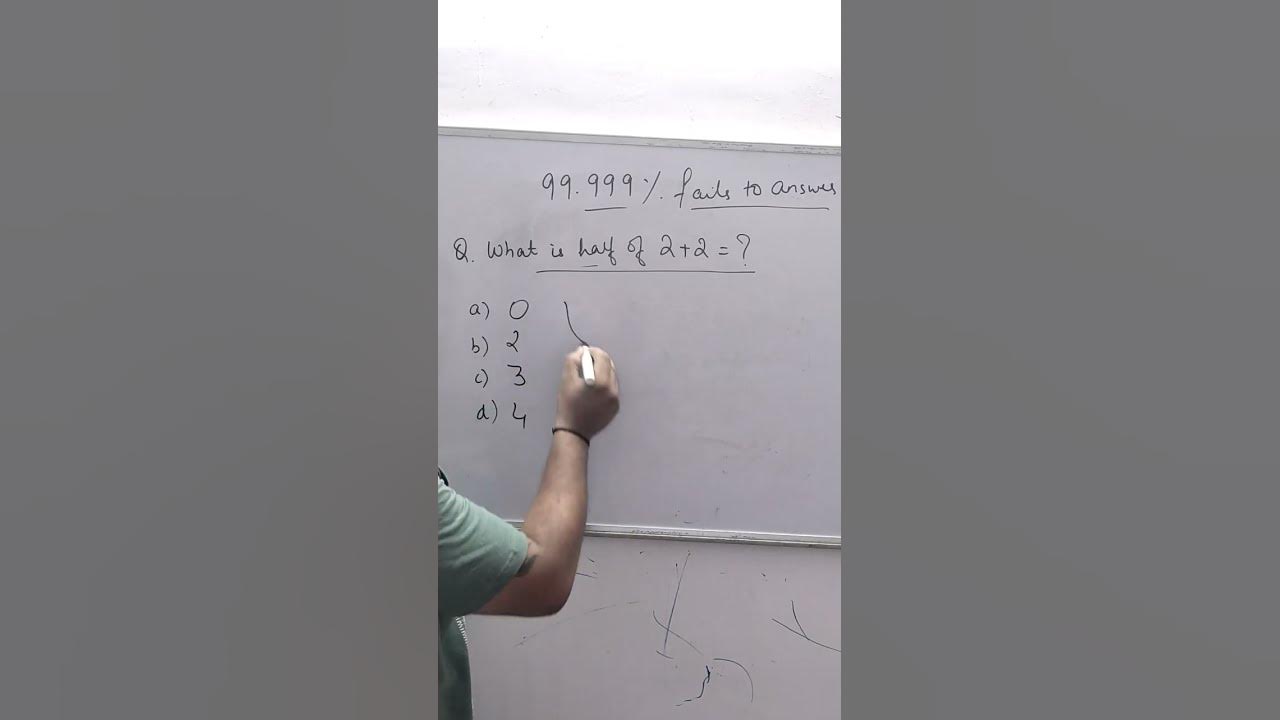 99.999%. fails to answer
Q. What is half of 2+2=?
a) 0
b) 2
c) 3
d) 4